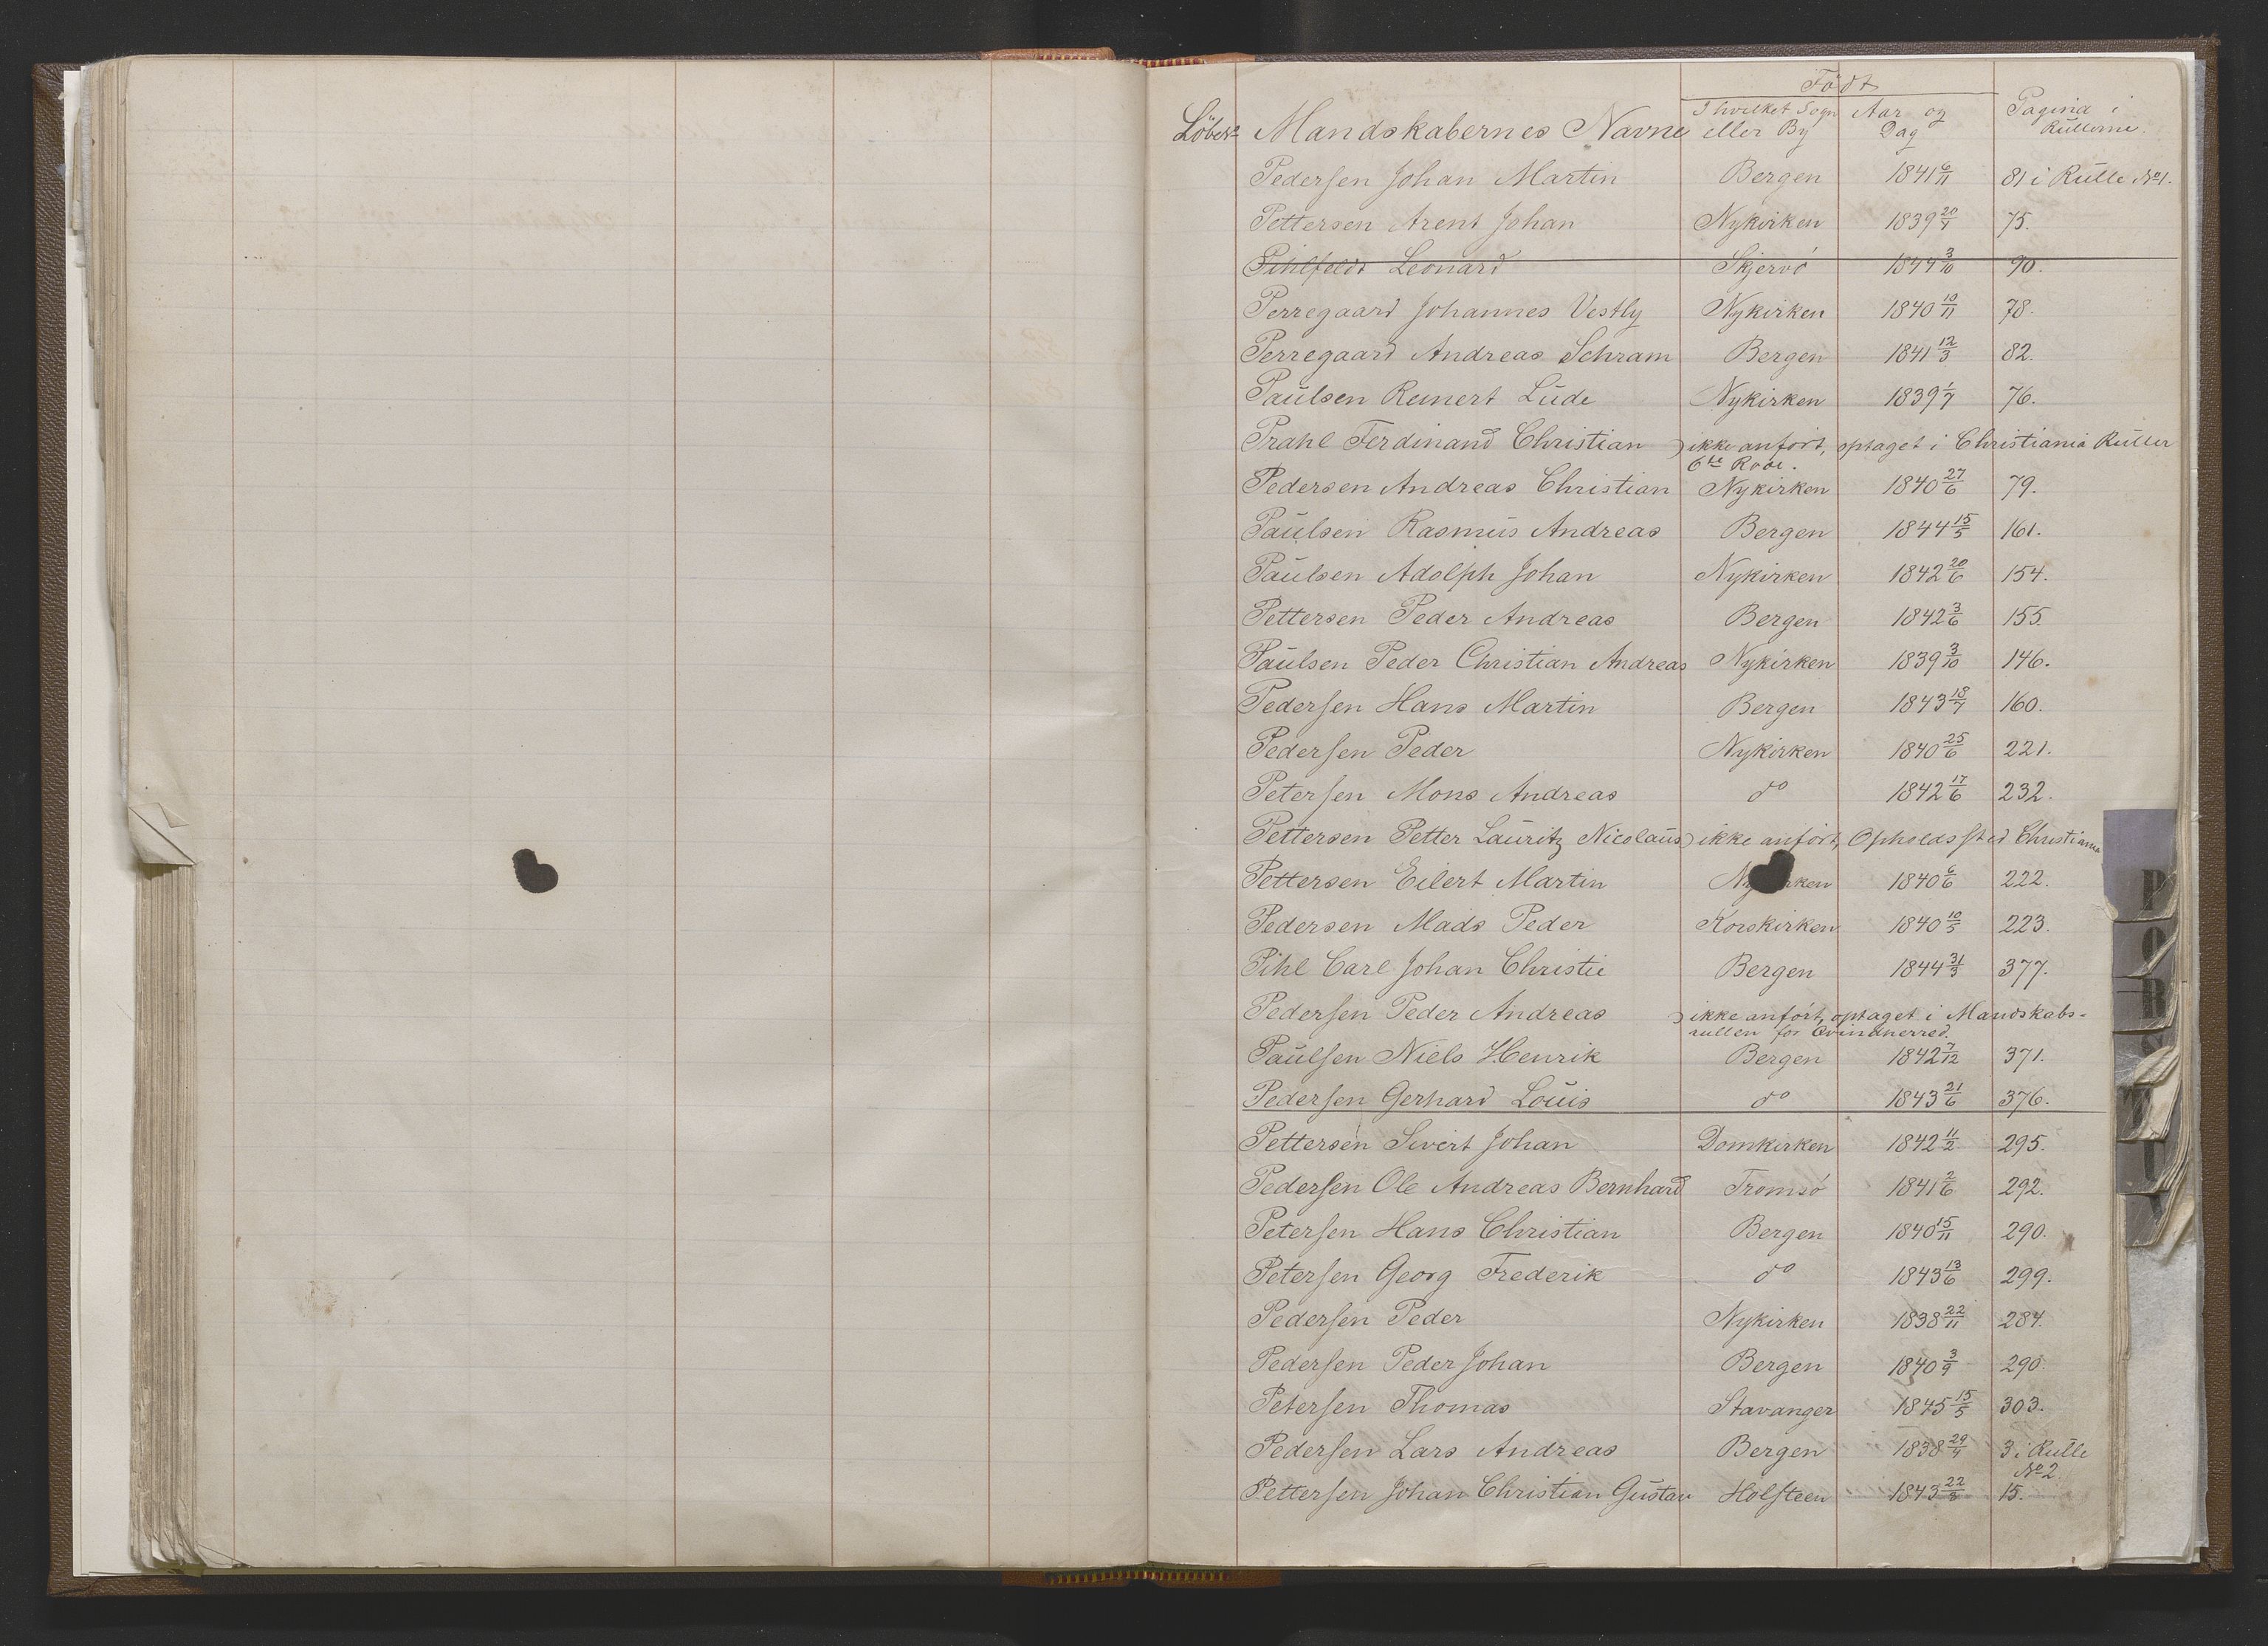 Födt
Löbe№ Mandskabernes Navne I hvilket Sogn eller By Aar og Dag Pagina i Rullerne
Pedersen Johan Martin Bergen 1841 6/11 81 i Rulle No 1.
Pettersen Arent Johan Nykirken 1839 20/7 75.
Pihlfeldt Leonard Skjervö 1844 3/10 90.
Perregaard Johannes Vestly Nykirken 1840 10/11 78.
Perregaard Andreas Schram Bergen 1841 12/3 82.
Paulsen Reinert Lude Nykirken 1839 1/7 76.
Prahl Ferdinand Christian ikke anfört, optaget i Christiania Ruller
6te Rode.
Pedersen Andreas Christian Nykirken 1840 27/6 79.
Paulsen Rasmus Andreas Bergen 1844 15/5 161.
Paulsen Adolph Johan Nykirken 1842 20/6 154.
Pettersen Peder Andreas Bergen 1842 3/6 155.
Paulsen Peder Christian Andreas Nykirken 1839 3/10 146.
Pedersen Hans Martin Bergen 1843 18/7 160.
Pedersen Peder Nykirken 1840 25/6 221.
Petersen Mons Andreas do 1842 17/6 232.
Pettersen Petter Lauritz Nicolaus ikke anfört, Opholdssted Christiania
Pettersen Eilert Martin Ny rken 1840 6/6 222.
Pedersen Mads Peder Korskirken 1840 10/5 223.
Pihl Carl Johan Christie Bergen 1844 31/3 377.
Pedersen Peder Andreas ikke anfört, optaget i Mandskabs-
rullen for Qvindherred.
Paulsen Niels Henrik Bergen 1842 7/12 371.
Pedersen Gerhard Louis do 1843 21/6 376.
Pettersen Sivert Johan Domkirken 1842 11/2 295.
Pedersen Ole Andreas Bernhard Tromsö 1841 2/6 292.
Petersen Hans Christian Bergen 1840 15/11 290.
Petersen Georg Frederik do 1843 13/6 299.
Pedersen Peder Nykirken 1838 22/11 284.
Pedersen Peder Johan Bergen 1840 3/9 290.
Petersen Thomas Stavanger 1845 15/5 303.
Pedersen Lars Andreas Bergen 1838 29/4 3 i Rulle
No 2.
Pettersen Johan Christian Gustav Holsteen 1843 22/8 15.
P
O
R
S
T